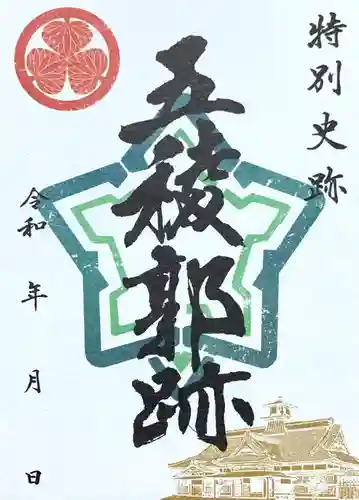 特別史跡
五稜郭跡
令和 年 月 日